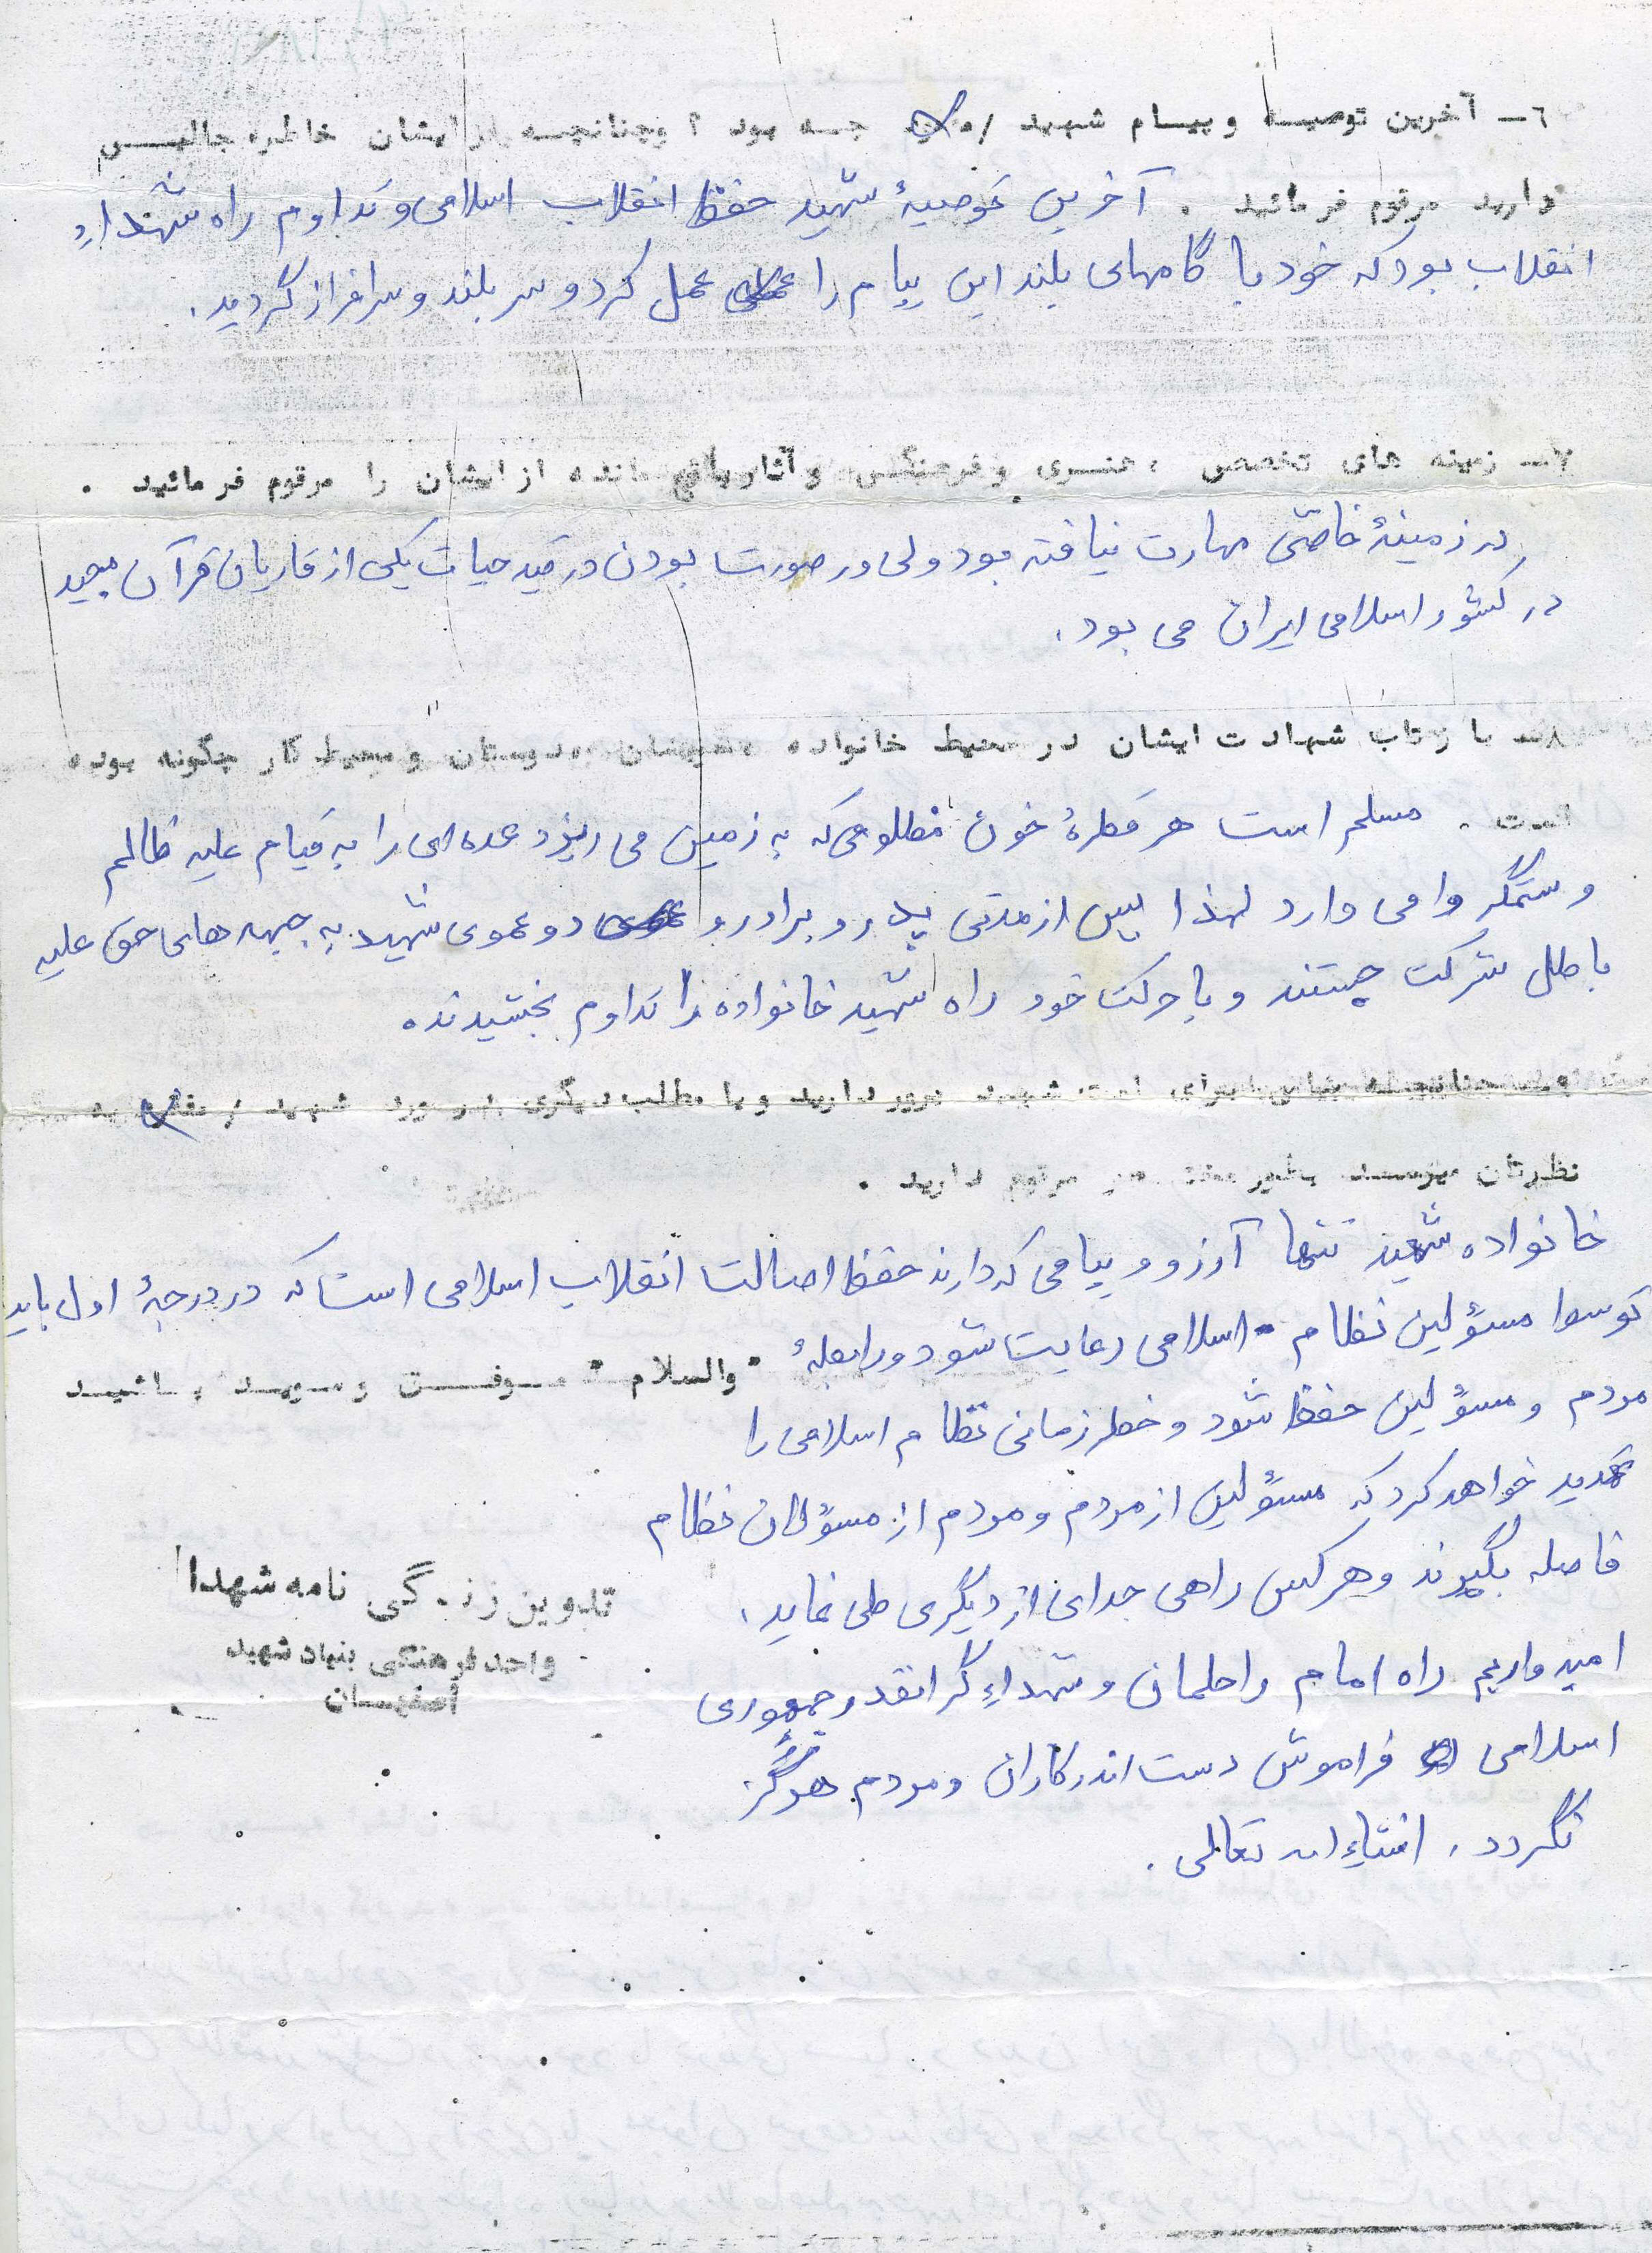 ٦ــ آخرین توصیه و پیام شهید / چه بود ؟ و چنانچه از ایشان خاطره جالبی
دارید مرقوم فرمائید . آخرین توصیهٔ شهید حفظ انقلاب اسلامی و تداوم راه شهداء
انقلاب بود که خود با گامهای بلند این پیام را عمل کرد و سربلند و سرافراز گردید.
٧ــ زمینه های تخصصی ، هنری و فرهنگی و آثار باقی مانده از ایشان را مرقوم فرمائید .
در زمینهٔ خاصّی مهارت نیافته بود ولی در صورت بودن در قید حیات یکی از قاریان قرآن مجید
در کشور اسلامی ایران می بود.
٨ــ بازتاب شهادت ایشان در محیط خانواده ، خویشان ، دوستان و محیط کار چگونه بوده
است . مسلم است هر قطرهٔ خون مظلومی که به زمین می ریزد عده ای را به قیام علیه ظالم
و ستمگر وا می دارد لهذا پس از مدتی پدر و برادر و دو عموی شهید به جبهه های حق علیه
باطل شرکت جستند و با حرکت خود راه شهید خانواده را تداوم بخشیدند.
چنانچه پیامی برای امت شهید پرور دارید و یا مطلب دیگری در مورد شهید / به
نظرتان میرسد بطور مختصر مرقوم دارید .
خانواده شهید تنها آرزو و پیامی که دارند حفظ اصالت انقلاب اسلامی است که در درجهٔ اول باید
توسط مسؤلین نظام اسلامی رعایت شود و رابطهٔ
" والسلام " موفق و مؤید باشید
مردم و مسؤلین حفظ شود و خطر زمانی نظام اسلامی را
تهدید خواهد کرد که مسؤلین از مردم و مردم از مسؤلان نظام
فاصله بگیرند و هر کس راهی جدای از دیگری طی نماید.
تدوین زندگی نامه شهدا
واحد فرهنگی بنیاد شهید
اصفهان
امیدواریم راه امام راحلمان و شهداء گرانقدر جمهوری
اسلامی فراموش دست اندرکاران و مردم هرگز
نگردد. انشاءاله تعالی.